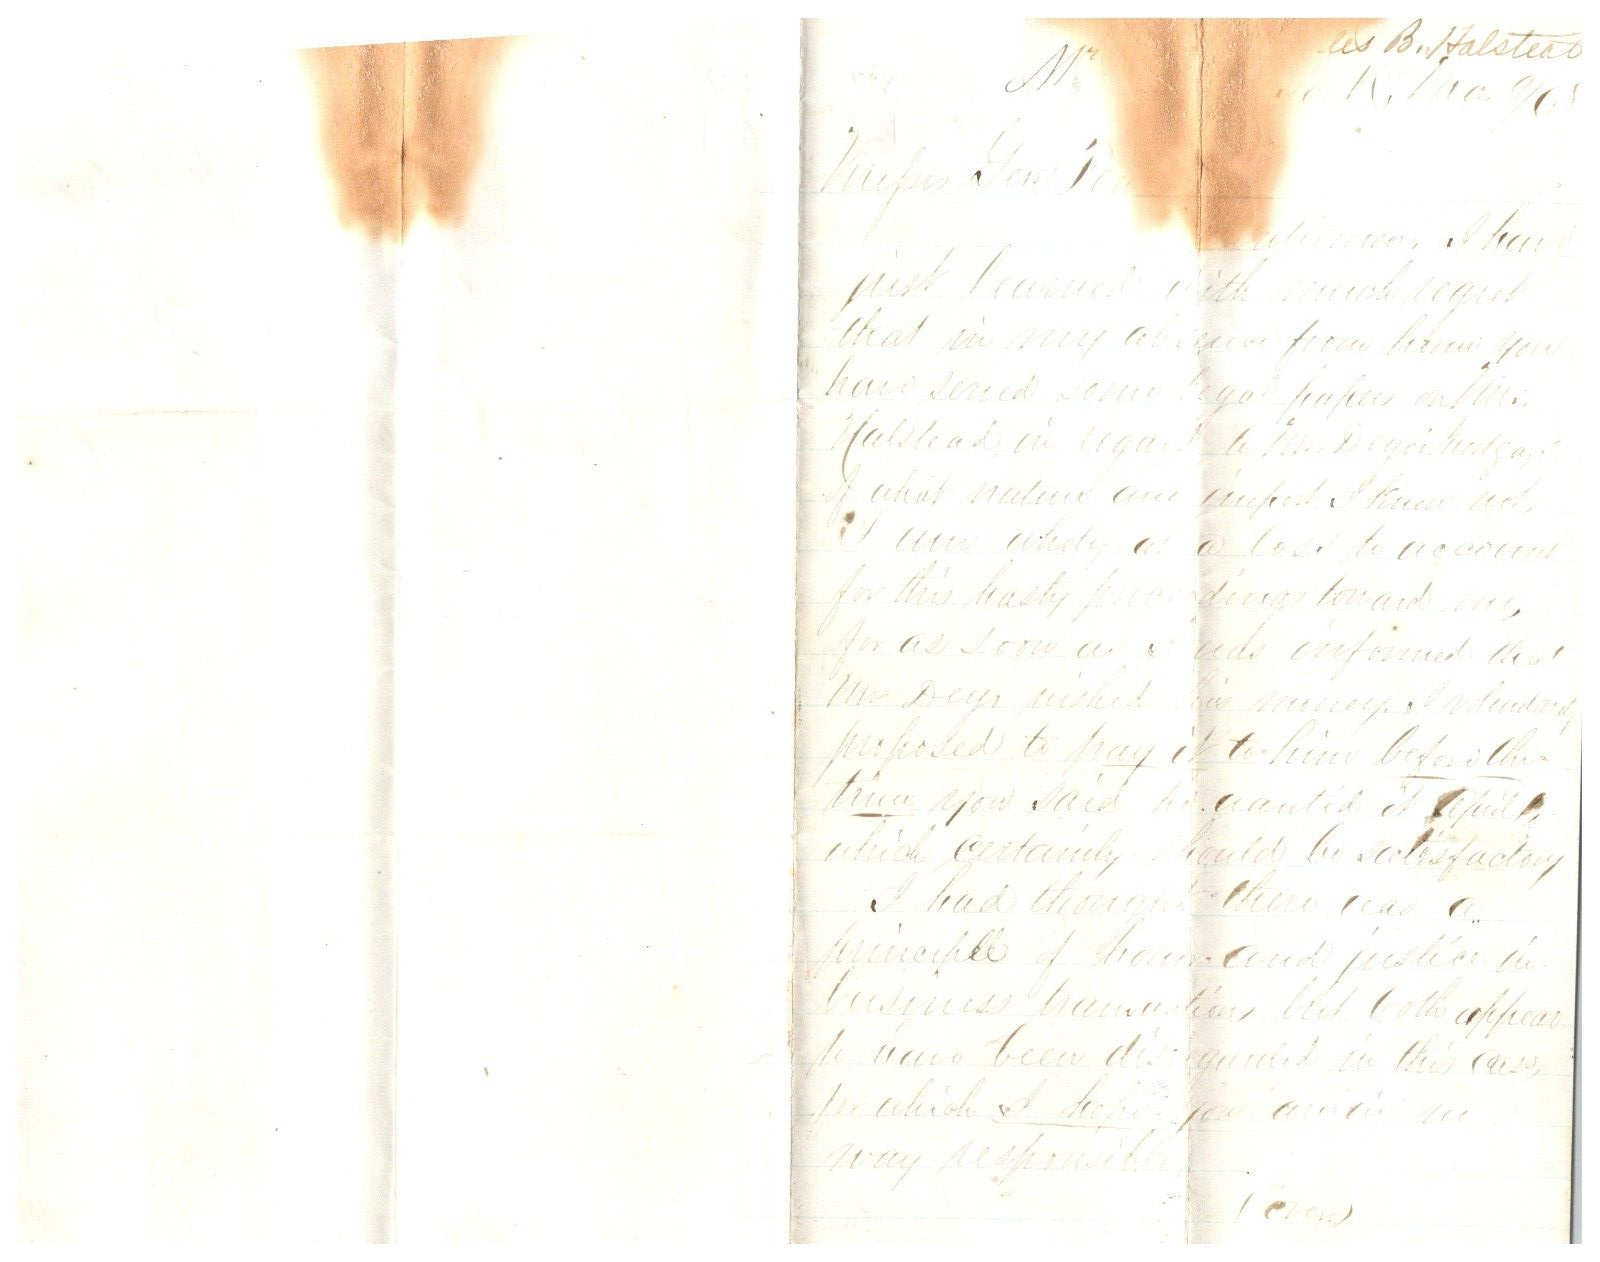 les B. Halstead
Mr
Messrs Geo.
I have
just learned with much regret
that in my absence from home you
have served some legal papers on Mrs.
Halstead, in regard to Mr. Deyo's Mortgage
of what nature and import I know not,
I am wholy at a loss to account
for this hasty proceedings toward me,
for as soon as I was informed that
Mr Deyo wished his money, I voluntarily
proposed to pay it to him before the
time you said he wanted it April
which certainly should be satisfactory
I had thought there was a
principle of honor and justice in
business transactions but both appear
to have been disregarded in this case,
for which I hope you are in no
way responsible
(over)